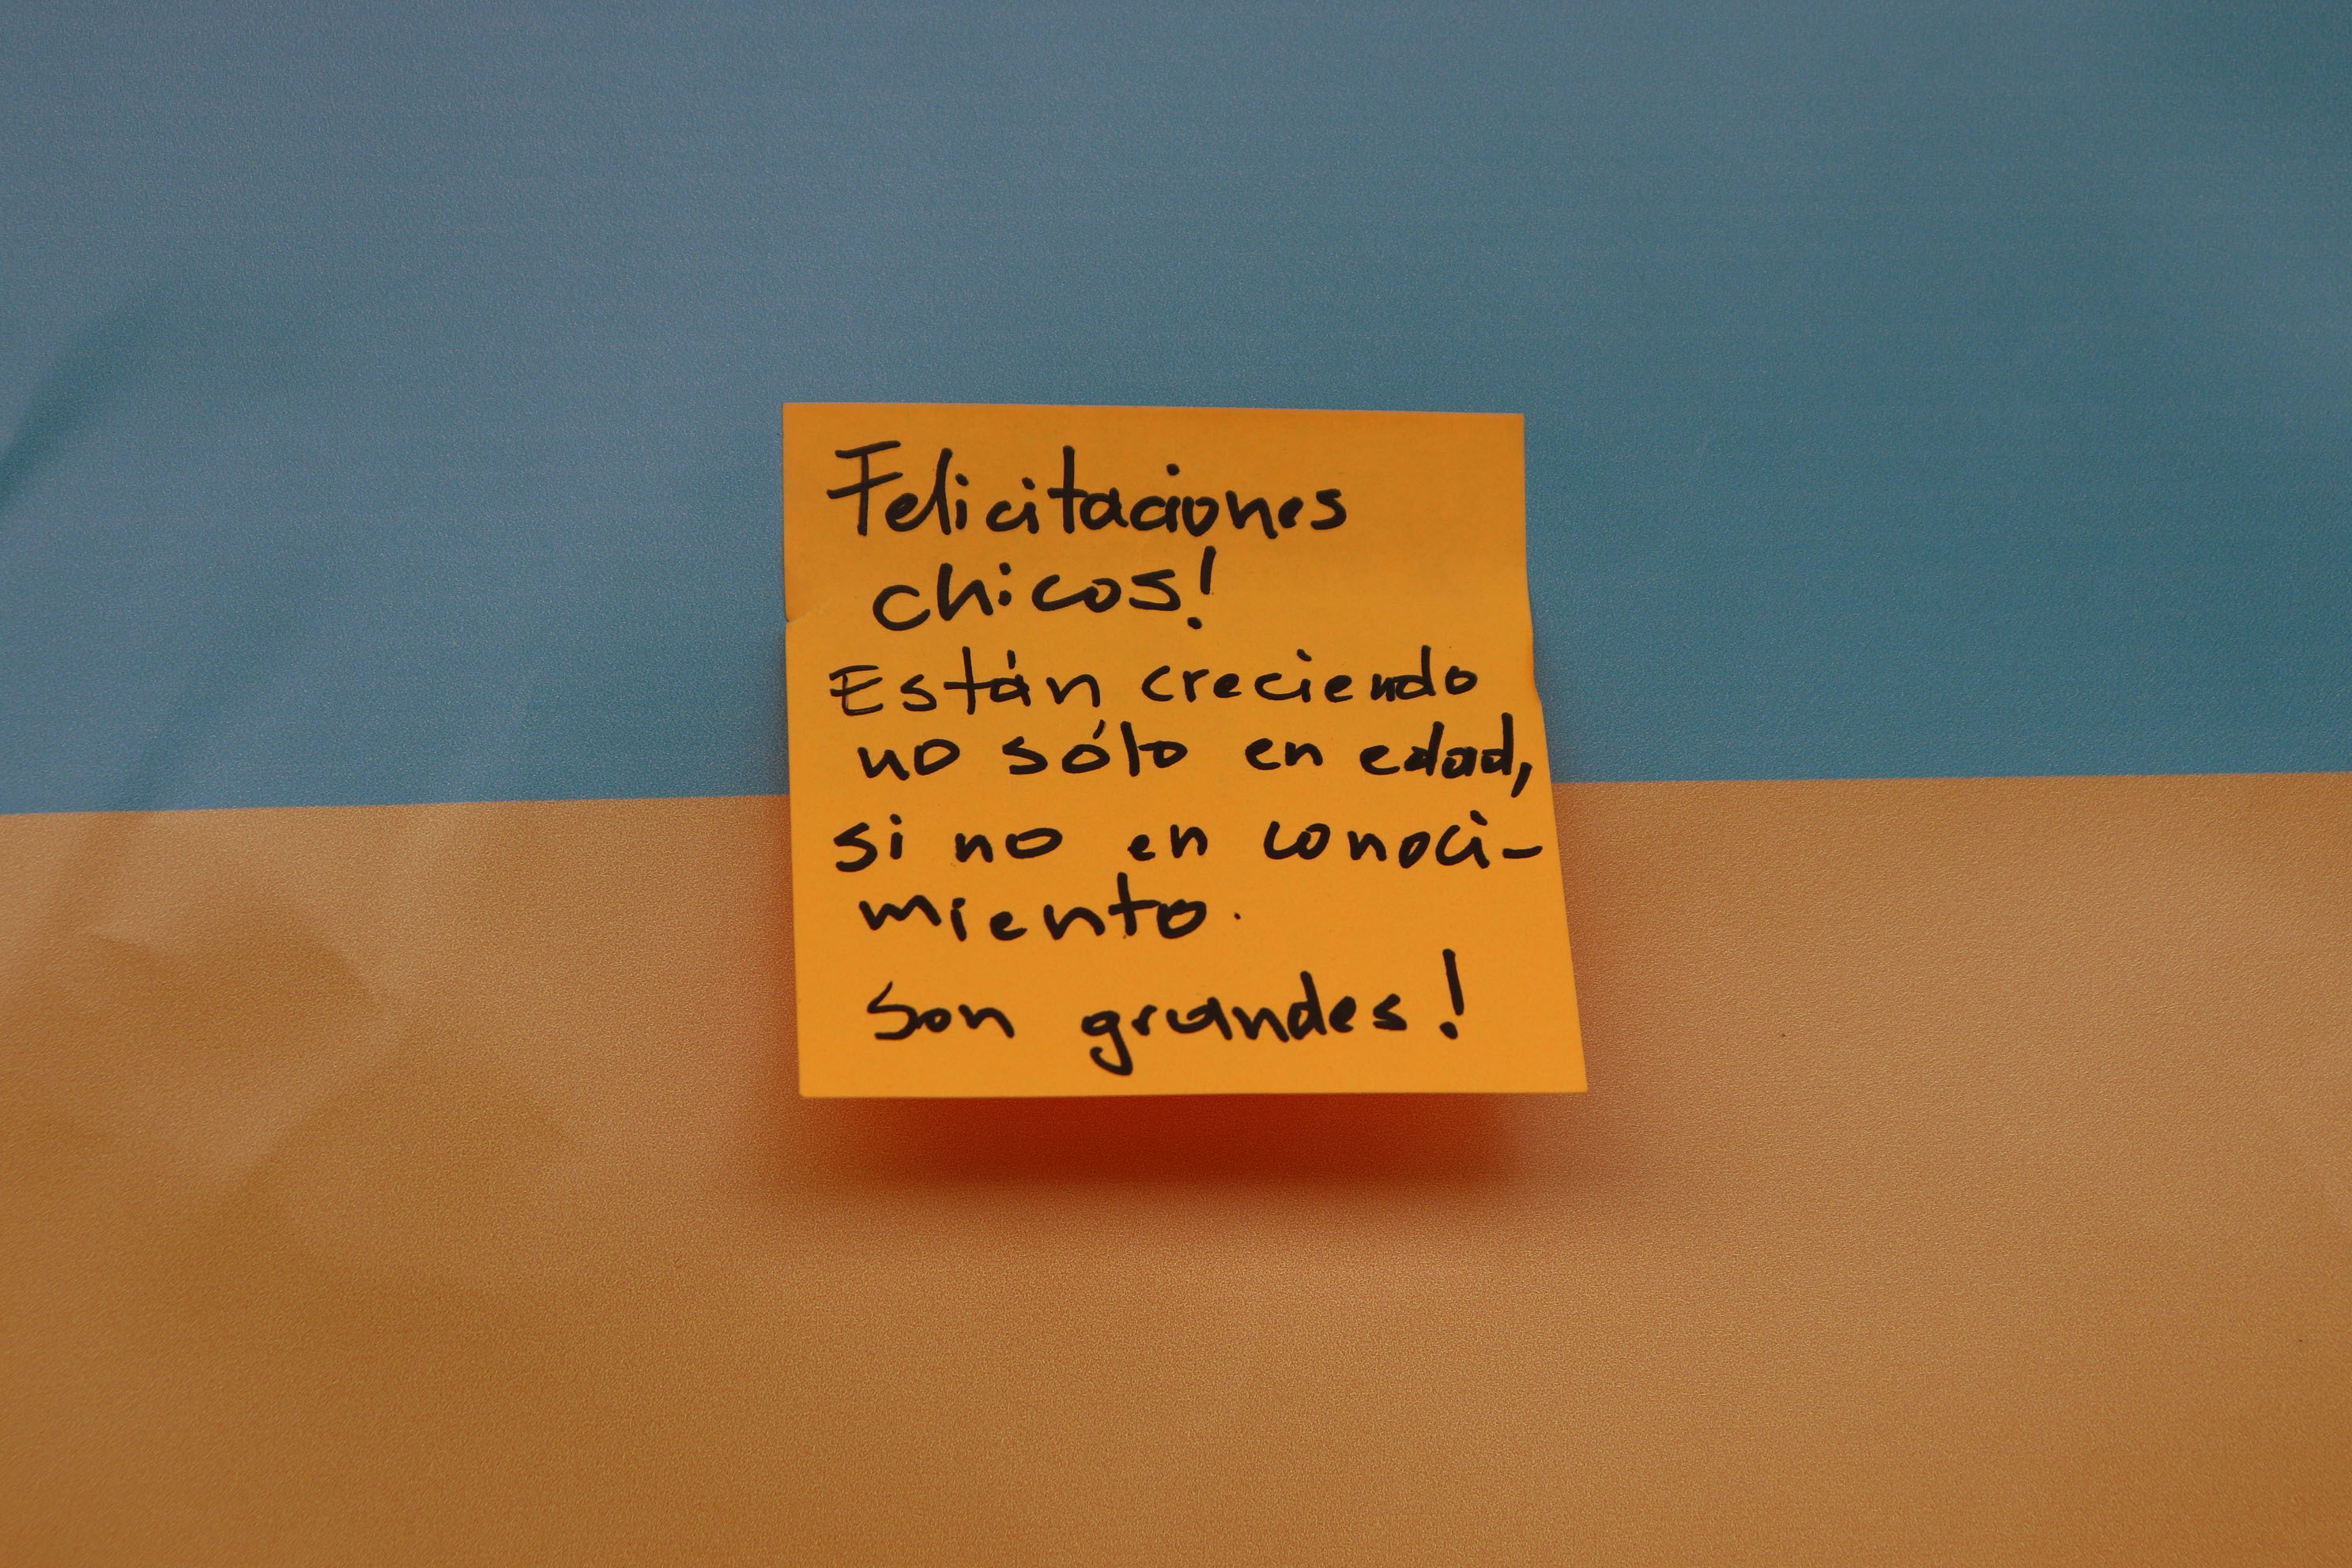 Felicitaciones
chicos!
Están creciendo
no sólo en edad,
si no en conoci-
miento.
Son grandes!